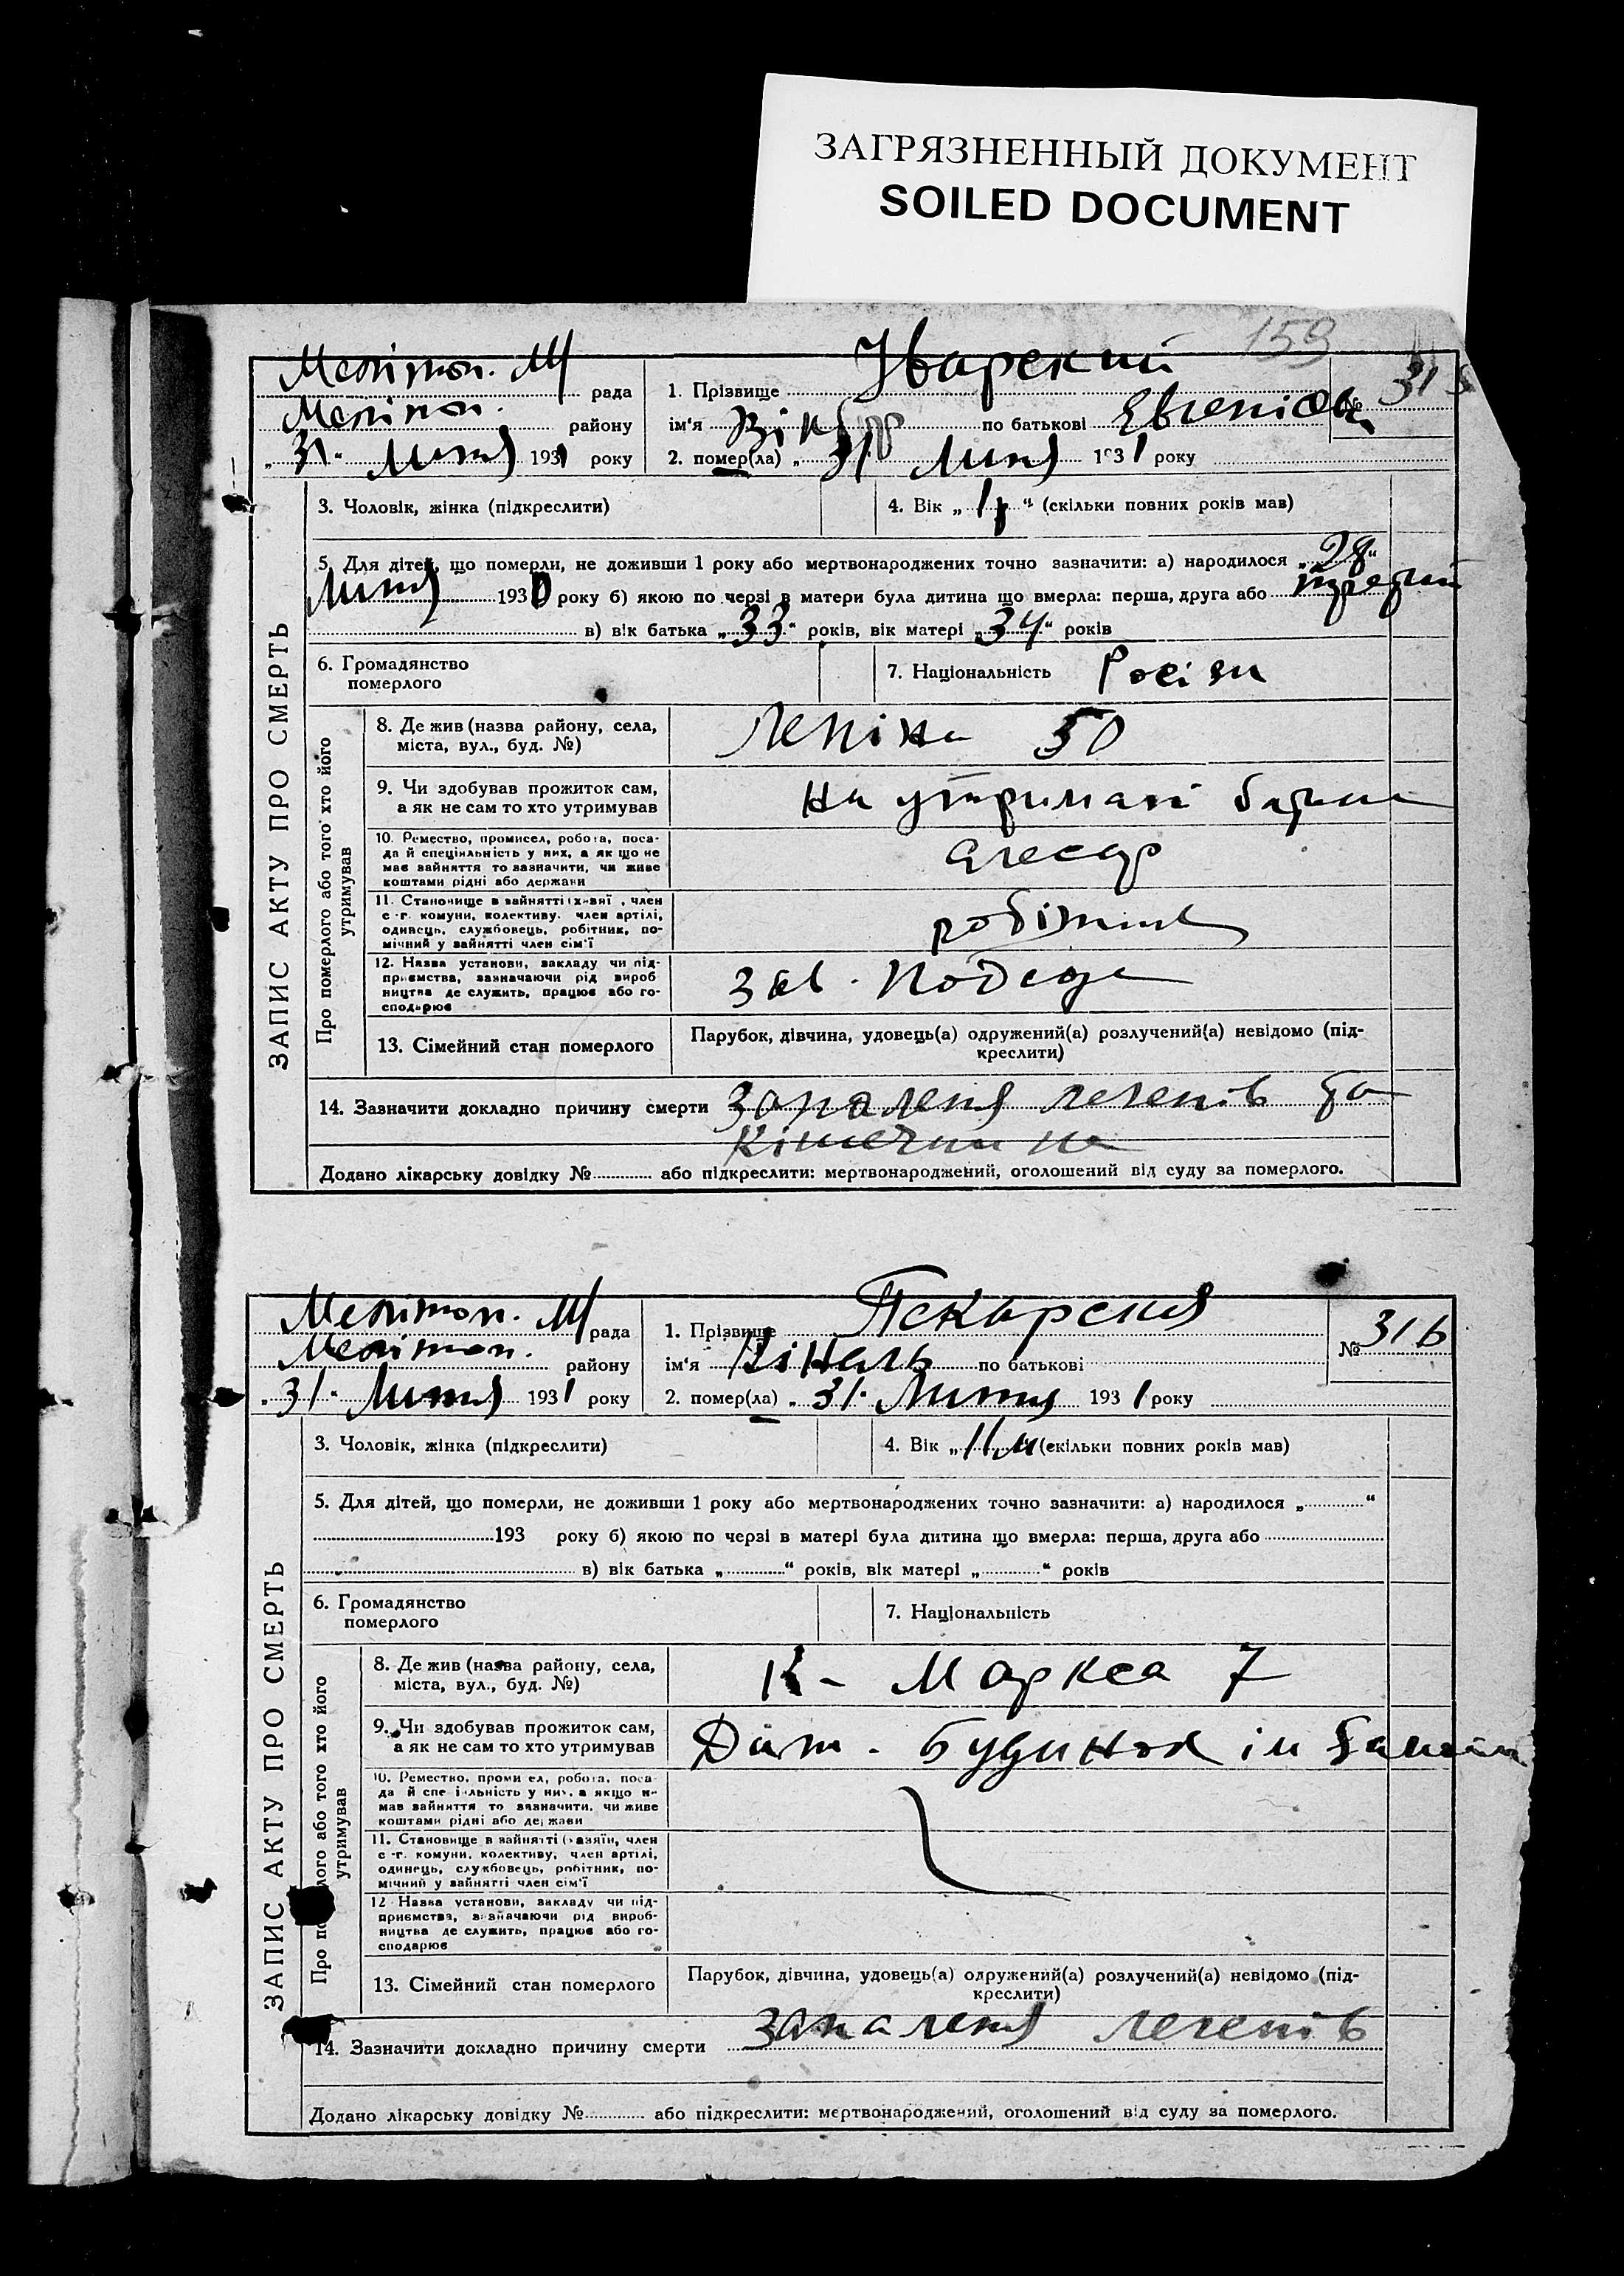 ЗАГРЯЗНЕННЫЙ ДОКУМЕНТ
SOILED DOCUMENT
159
ЗАПИС АКТУ ПРО СМЕРТЬ
Мелітоп. рада
Мелітоп. району
„31“ Липня 1931 року
1. Прізвище
№ 315
ім'я Віктор по батькові
2. помер(ла) „31 Липня 1931 року
3. Чоловік, жінка (підкреслити)
4. Вік „1р“ (скільки повних років мав)
5. Для дітей, що померли, не доживши 1 року або мертвонароджених точно зазначити: а) народилося „28“
Липня 1930 року б) якою по черзі в матери була дитина що вмерла: перша, друга або третій
в) вік батька „33“ років, вік матері „34“ років
6. Громадянство
померлого
7. Національність Росіян
Про померлого або того хто його
утримував
8. Де жив (назва району, села,
міста, вул., буд. №)
Леніна 50
9. Чи здобував прожиток сам,
а як не сам то хто утримував
На утримані батька
10. Ремество, промисел, робота, поса-
да й спеціяльність у них, а як що не
має зайняття то зазначити, чи живе
коштами рідні або держави
слесар
11. Становище в зайнятті (хазяї, член
с.-г. комуни, колективу, член артілі,
одинець, службовець, робітник, по-
мічний у зайнятті член сім'ї
робітник
12. Назва установи, закладу чи під-
приємства, зазначаючи рід вироб
ництва де служить, працює або го-
сподарює
Зав. Победа
13. Сімейний стан померлого
Парубок, дівчина, удовець(а) одружений(а) розлучений(а) невідомо (під-
креслити)
14. Зазначити докладно причину смерти Запаленя легенів та
Додано лікарську довідку № або підкреслити: мертвонароджений, оголошений від суду за померлого.
ЗАПИС АКТУ ПРО СМЕРТЬ
Мелітоп. рада
Мелітоп. району
„31“ Липня 1931 року
1. Прізвище Пекарская
№ 316
ім'я Нінель по батькові
2. помер(ла) „31“ Липня 1931 року
3. Чоловік, жінка (підкреслити)
4. Вік „11 м“ (скільки повних років мав)
5. Для дітей, що померли, не доживши 1 року або мертвонароджених точно зазначити: а) народилося „ “
193 року б) якою по черзі в матері була дитина що вмерла: перша, друга або
в) вік батька „ “ років, вік матері „ “ років
6. Громадянство
померлого
7. Національність
лого або того хто його
утримував
8. Де жив (назва району, села,
міста, вул., буд. №)
К- Маркса 7
9. Чи здобував прожиток сам,
а як не сам то хто утримував
Дит. будинок ім
10. Ремество, проми ел, робота, поса
да й спе іяльність у них, а якщо н
мав зайняття то зазначити, чи живе
коштами рідні або держави
11. Становище в зайнятті (хазяїн, член
с.-г. комуни, колективу, член артілі,
одинець, службовець, робітник, по-
мічний у зайнятті член сім'ї
12 Назва установи, закладу чи під-
приємства, зазначаючи рід вироб-
ництва де служить, працює або го-
сподарює
13. Сімейний стан померлого
Парубок, дівчина, удовець(а) одружений(а) розлучений(а) невідомо (під-
креслити)
14. Зазначити докладно причину смерти Запаленя легенів
Додано лікарську довідку № або підкреслити: мертвонароджений, оголошений від суду за померлого.